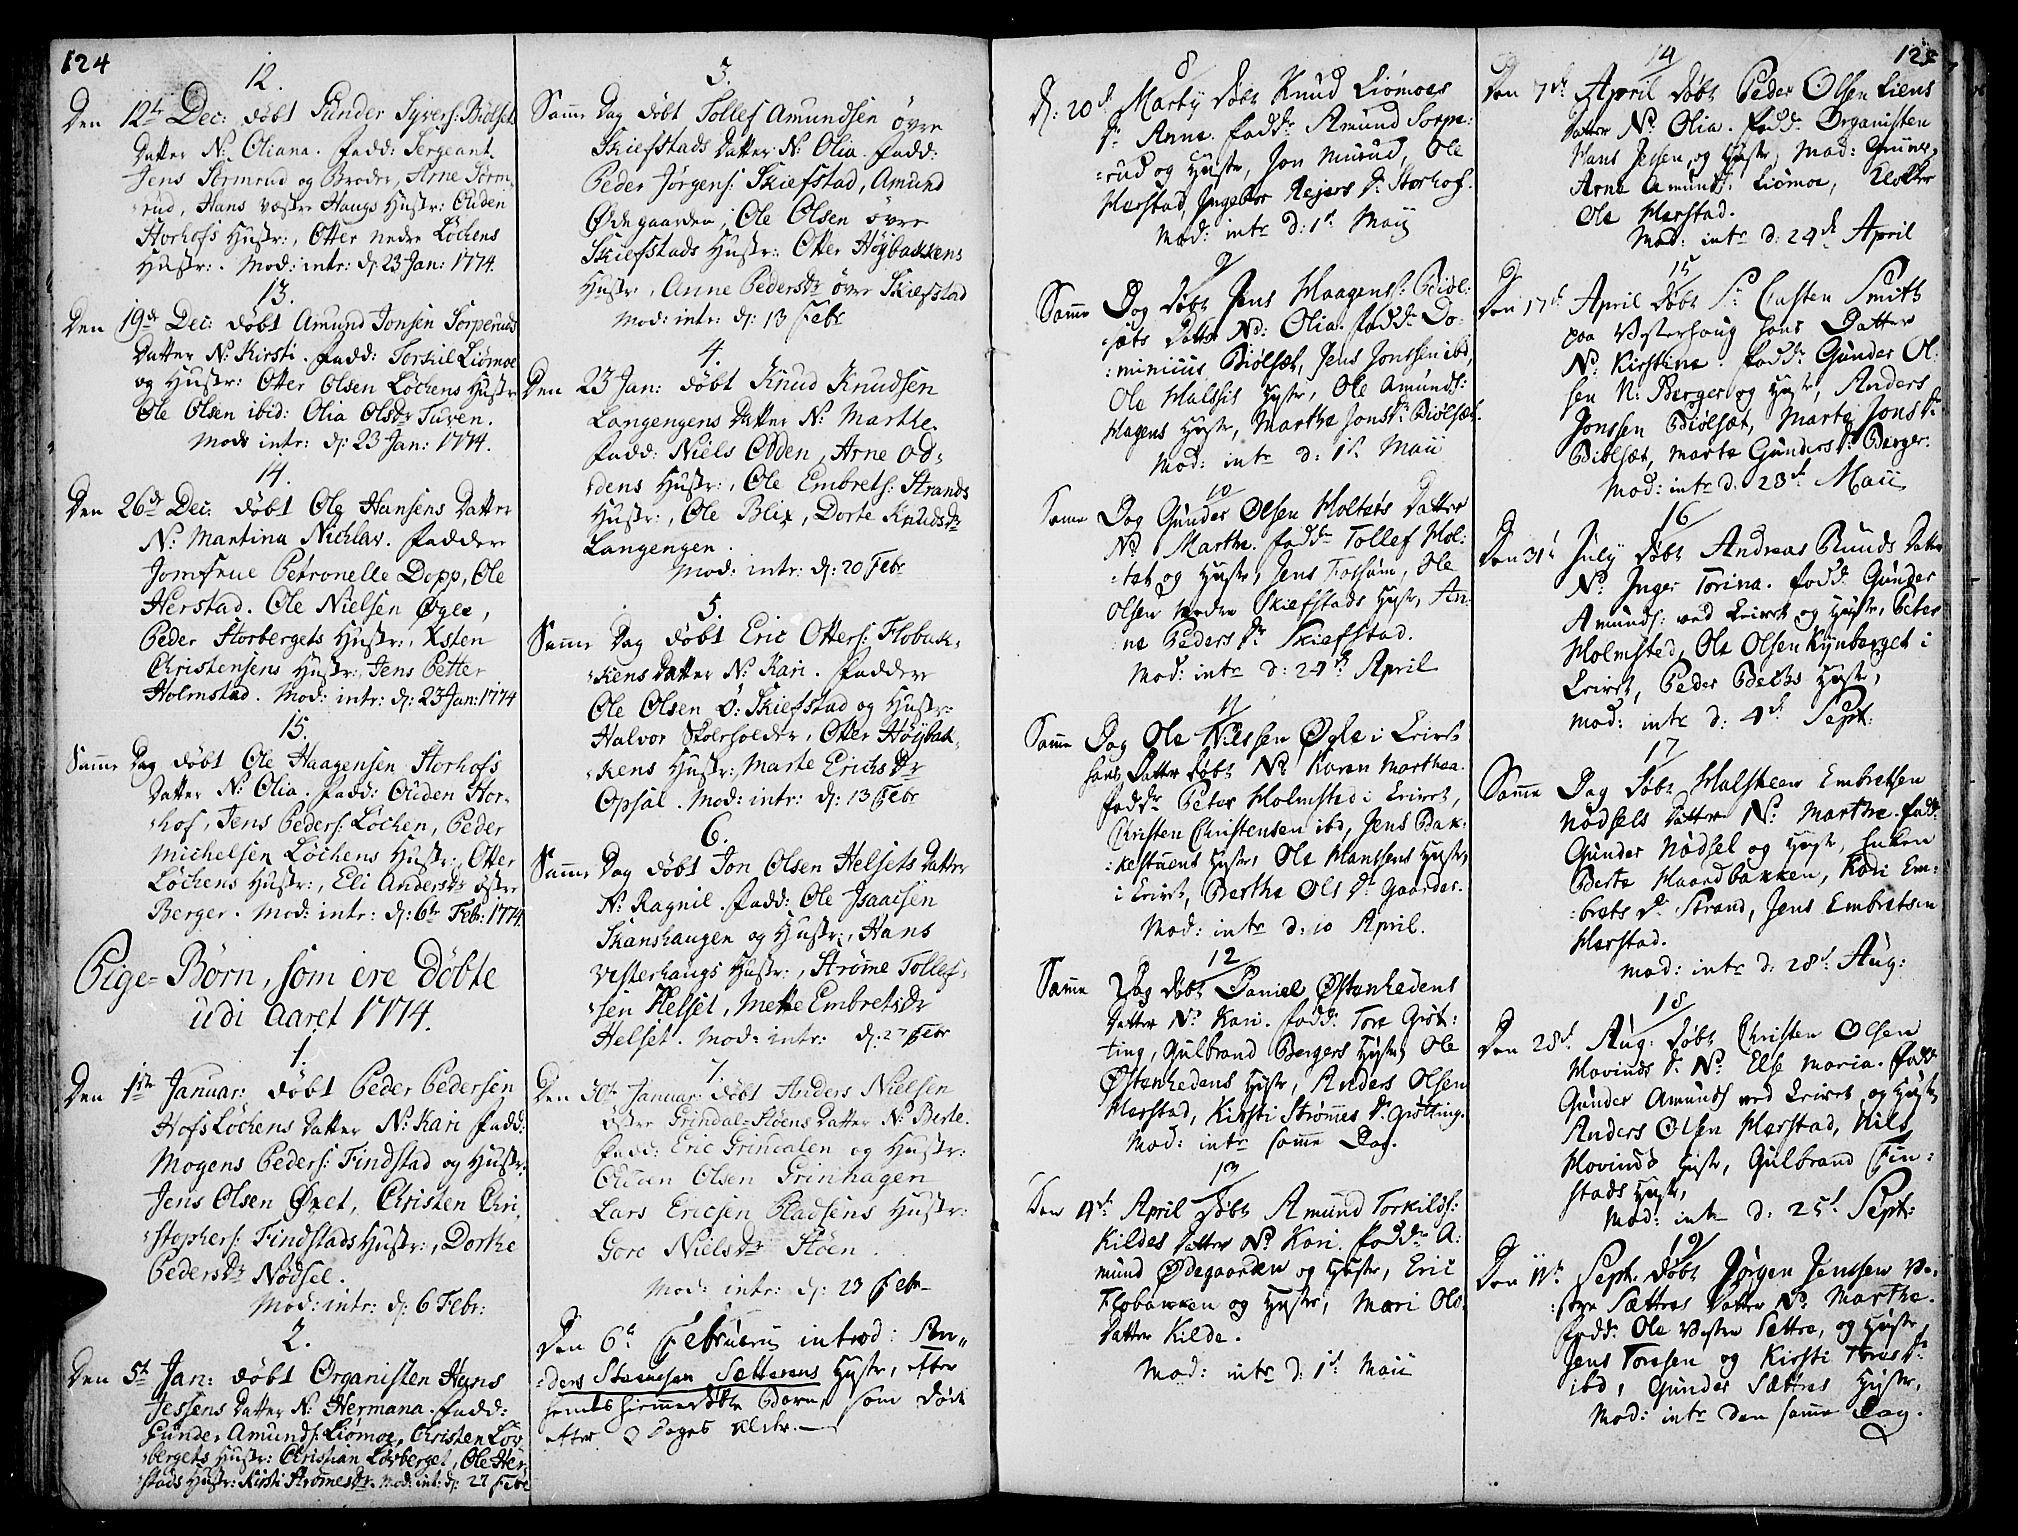 124
12.
Den 12te Dec: döbt Gunder Syvers: Biölsets
Datter N: Oliana. Fadd: Sergeant
Jens Stormrud og Broder, Arne Storm-
rud, Hans Vestre Haugs Hustr: Ouden
Storhofs Hustr:, Otter Nedre Löchens
Hustr:. Mod: intr: d: 23 Jan: 1774.
13.
Den 19de Dec: döbt Amund Jonsen Sorperuds
Datter N: Kirsti. Fadd: Torkil Liömoe
og Hustr: Otter Olsen Löchens Hustr
Ole Olsen ibid: Olia Olsdr Turen.
Mod: intr: d: 23 Jan: 1774.
14.
Den 26de Dec: döbt Ole Hansens Datter
N: Martina Nichlav. Fadder
Jomfrue Petronelle Dopp, Ole
Herstad. Ole Nielsen Øgle,
Peder Storbergets Hustr:, Xsten
Christensens Hustr: Jens Petter
Holmstad. Mod: intr: d: 23 Jan: 1774
15.
Samme Dag döbt Ole Haagensen Storhofs
Datter N: Olia. Fadd: Ouden Stor-
hof, Jens Peders: Löchen, Peder
Michelsen Löchens Hustr:, Otter
Löchens Hustr:, Eli Andersdr öster
Berger. Mod: intr: d: 6te Feb: 1774.
Pige-Börn, som ere döbte
udi Aaret 1774.
1.
Den 1ste Januar: döbt Peder Pedersen
Hofslöchens Datter N: Kari Fadd:
Mogens Peders: Findstad og Hustr:
Jens Olsen Øxet, Christen Chri-
stophers: Findstads Hustr:, Dorthe
Pedersdr Nødsel.
Mod: intr: d: 6 Febr:
2.
Den 5te Jan: döbt Organisten Hans
Jessens Datter N: Hermana. Fadd:
Gunder Amunds: Liömoe, Christen Löv-
bergets Hustr: Christian Lövberget, Ole Her-
stads Hustr: Kirsti Strömesdr. Mod: int: d: 27 Febr
3.
Samme Dag döbt Tollef Amundsen övre
Skiefstads Datter N: Olia. Fadd:
Peder Jørgens: Skiefstad, Amund
Ødegaarden, Ole Olsen övre
Skiefstads Hustr: Otter Höybakkens
Hustr:, Anne Pedersdr övre Skiefstad
Mod: intr: d: 13 Febr
4.
Den 23 Jan: döbt Knud Knudsen
Langengens Datter N: Marthe.
Fadd: Niels Odden, Arne Od-
dens Hustr:, Ole Embrets: Strands
Hustr:, Ole Blix, Dorte Knudsdr
Langengen.
Mod: intr: d: 20 Febr
5.
Samme Dag döbt Eric Otters: Flobak-
kens Datter N: Kari. Fadder
Ole Olsen Ö: Skiefstad og Hustr:
Halvor Skoleholder, Otter Höybak-
kens Hustr:, Marte Erichsdr
Opsal. Mod: intr: d: 13 Febr
6.
Samme Dag döbt Jon Olsen Helsets Datter
N: Ragnil. Fadd: Ole Isaacsen
Skanshaugen og Hustr:, Hans
Vesterhaugs Hustr:, Strøme Tollef-
sen Helset, Mette Embretsdr
Helset. Mod: intr: d: 27 Febr
7.
Den 30te Januar: döbt Anders Nielsen
östre Grindal-Stöens Datter N: Berte.
Fadd: Eric Grindalen og Hustr:
Ouden Olsen Grinhagen
Lars Ericsen Pladsens Hustr:
Gore Nielsdr Stöen.
Mod: intr: d: 23 Febr
Den 6te Februarii introd: An-
ders Steensen Setterens Hustr, efter
hendes hiemmedöbte Barn, som döde
efter 2 Dages Alder.
8
d: 20de Martij döbt Knud Liömoes
Dr Anne. Fadd: Amund Sorpe-
rud og Hustr, Jon Murud, Ole
Herstad, Ingebor Rejers Dr Storhof.
Mod: intr d: 1ste Maij
9
Samme Dag döbt Jens Haagens: Biöl-
sets Datter N: Olia. Fadd: Do-
minicus Biölset, Jens Jonssen ibd,
Ole Halsteis Hustr, Ole Amunds:
Hagens Hustr, Marthe Jons Dr Biölset.
Mod: intr d: 1ste Maii
10
Samme Dag Gunder Olsen Holtets Datter
N: Marthe. Fadd: Tollef Hol-
tet og Hustr, Jens Fossum, Ole
Olsen Nedre Skiefstads Hustr, An-
ne Peders Dr Skiefstad.
Mod: intr d: 24de April
11
Samme Dag Ole Nilssen Øgle i Leiret
hans Datter döbt N: Karen Marthea.
Fadd: Peter Holmsted i Leiret,
Christen Christensen ibd, Jens Bak-
kestuens Hustr, Ole Hansens Hustr,
i Leiret, Berthe Ols Dr Gaarder.
Mod: intr d: 10 April.
12
Samme Dag döbt Daniel Østenhedens
Datter N: Kari. Fadd: Tore Gröt-
ting, Gulbrand Bergers Hustr, Ole
Østenhedens Hustr, Anders Olsen
Herstad, Kirsti Strömmes Dr Grötting.
Mod: intr samme Dag.
13
Den 4de April döbt Amund Torkilds:
Kildes Datter N: Kari. Fadd: A-
mund Ødegaarden og Hustr, Eric
Flobakken og Hustr, Mari Ols
Datter Kilde.
Mod: intr d: 1ste Maii
125
14
Den 7de April döbt Peder Olsen Liens
Datter N: Olia. Fadd: Organisten
Hans Jessen, og Hustr, Mad: Grüner,
Arne Amunds: Liömoe, Klokker
Ole Herstad.
Mod: intr d: 24de April
15
Den 17de April döbt Sr Carsten Smith
paa Vesterhaug hans Datter
N: Kirstine. Fadd: Gunder Ol-
sen N: Berger og Hustr, Anders
Jonssen Biölset, Marte Jons Dr
Biölset, Marte Gunders Dr Berger.
Mod: intr d: 23de Maii
16
Den 31te July döbt Andreas Bunds Datter
N: Inger Torina. Fadd: Gunder
Amunds: ved Leiret og Hustr, Peter
Holmsted, Ole Olsen Kynberget i
Leiret, Peder Becks Hustr,
Mod: intr d: 4de Sept:
17
Samme Dag döbt Halsteen Embretsen
Nødsels Datter N: Marthe. Fadd:
Gunder Nødsel og Hustr, Enken
Berte Haardbakken, Kari Em-
brets Dr Strand, Jens Embretsen
Herstad.
Mod: intr d: 28de Aug:
18
Den 28de Aug: döbt Christen Olsen
Hovinds Dr N: Else Maria. Fadd
Gunder Amunds ved Leiret og Hustr
Anders Olsen Herstad, Nils
Hovinds Hustr, Gulbrand Fin-
stads Hustr,
Mod: intr d: 25de Sept:
19
Den 11te Sept: döbt Jörgen Jenssen Ve-
stre Sættres Datter N: Marthe.
Fadd: Ole Vestre Settre, og Hustr,
Jens Toresen og Kirsti Tores Dr
ibd, Gunder Sættres Hustr,
Mod: intr den samme Dag.